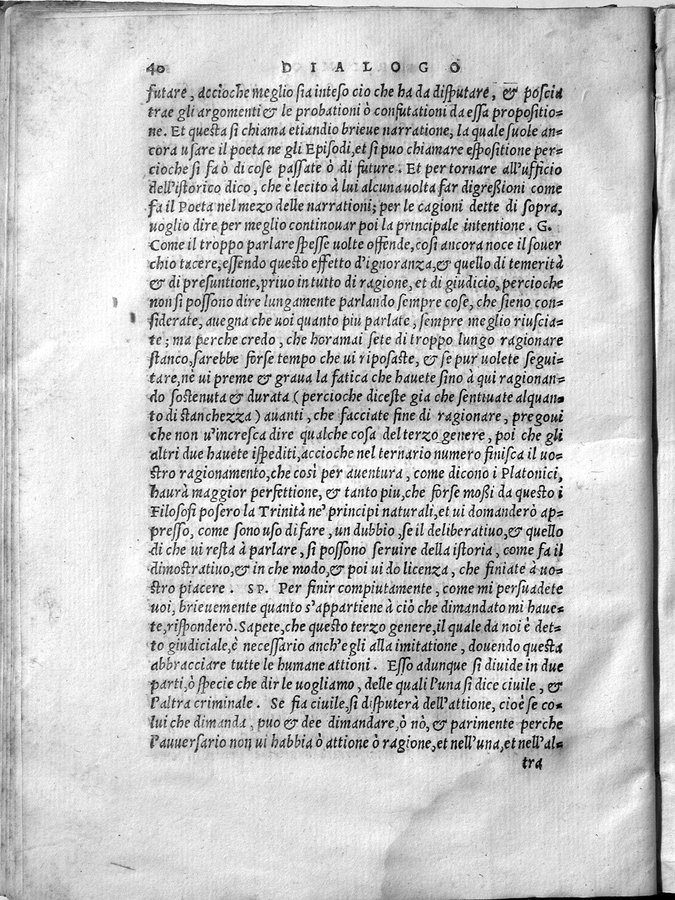 40 DIALOGO
futare, accioche meglio sia inteso cio che ha da disputare, & poscia
trae gli argomenti & le probationi ò confutationi da essa propositio=
ne. Et questa si chiama etiandio brieue narratione, la quale suole an=
cora usare il poeta ne gli Episodi, et si puo chiamare espositione per=
cioche si fa ò di cose passate ò di future. Et per tornare all'ufficio
dell'istorico dico, che è lecito à lui alcuna uolta far digreßioni come
fa il Poeta nel mezo delle narrationi; per le cagioni dette di sopra,
uoglio dire, per meglio continouar poi la principale intentione. G.
Come il troppo parlare spesse uolte offende, così ancora noce il souer
chio tacere, essendo questo effetto d'ignoranza, & quello di temerità
& di presuntione, priuo in tutto di ragione, et di giudicio, percioche
non si possono dire lungamente parlando sempre cose, che sieno con=
siderate, auegna che uoi quanto piu parlate, sempre meglio riuscia=
te; ma perche credo, che horamai sete di troppo lungo ragionare
stanco, sarebbe forse tempo che ui riposaste, & se pur uolete segui=
tare, nè ui preme & graua la fatica che hauete sino à qui ragionan=
do sostenuta & durata (percioche diceste gia che sentiuate alquan=
to di stanchezza) auanti, che facciate fine di ragionare, pregoui
che non u'incresca dire qualche cosa del terzo genere, poi che gli
altri due hauete ispediti, accioche nel ternario numero finisca il uo=
stro ragionamento, che così per auentura, come dicono i Platonici,
haurà maggior perfettione, & tanto piu, che forse moßi da questo i
Filosofi posero la Trinità ne' principi naturali, et ui domanderò ap=
presso, come sono uso di fare, un dubbio, se il deliberatiuo, & quello
di che ui resta à parlare, si possono seruire della istoria, come fa il
dimostratiuo, & in che modo, & poi ui do licenza, che finiate à uo=
stro piacere. SP. Per finir compiutamente, come mi persuadete
uoi, brieuemente quanto s'appartiene à ciò che dimandato mi haue=
te, risponderò. Sapete, che questo terzo genere, il quale da noi è det=
to giudiciale, è necessario anch'egli alla imitatione, douendo questa
abbracciare tutte le humane attioni. Esso adunque si diuide in due
parti, ò specie che dir le uogliamo, delle quali l'una si dice ciuile, &
l'altra criminale. Se fia ciuile, si disputerà dell'attione, cioè se co=
lui che dimanda, puo & dee dimandare, ò nò, & parimente perche
l'auuersario non ui habbia ò attione ò ragione, et nell'una, et nell'al=
tra